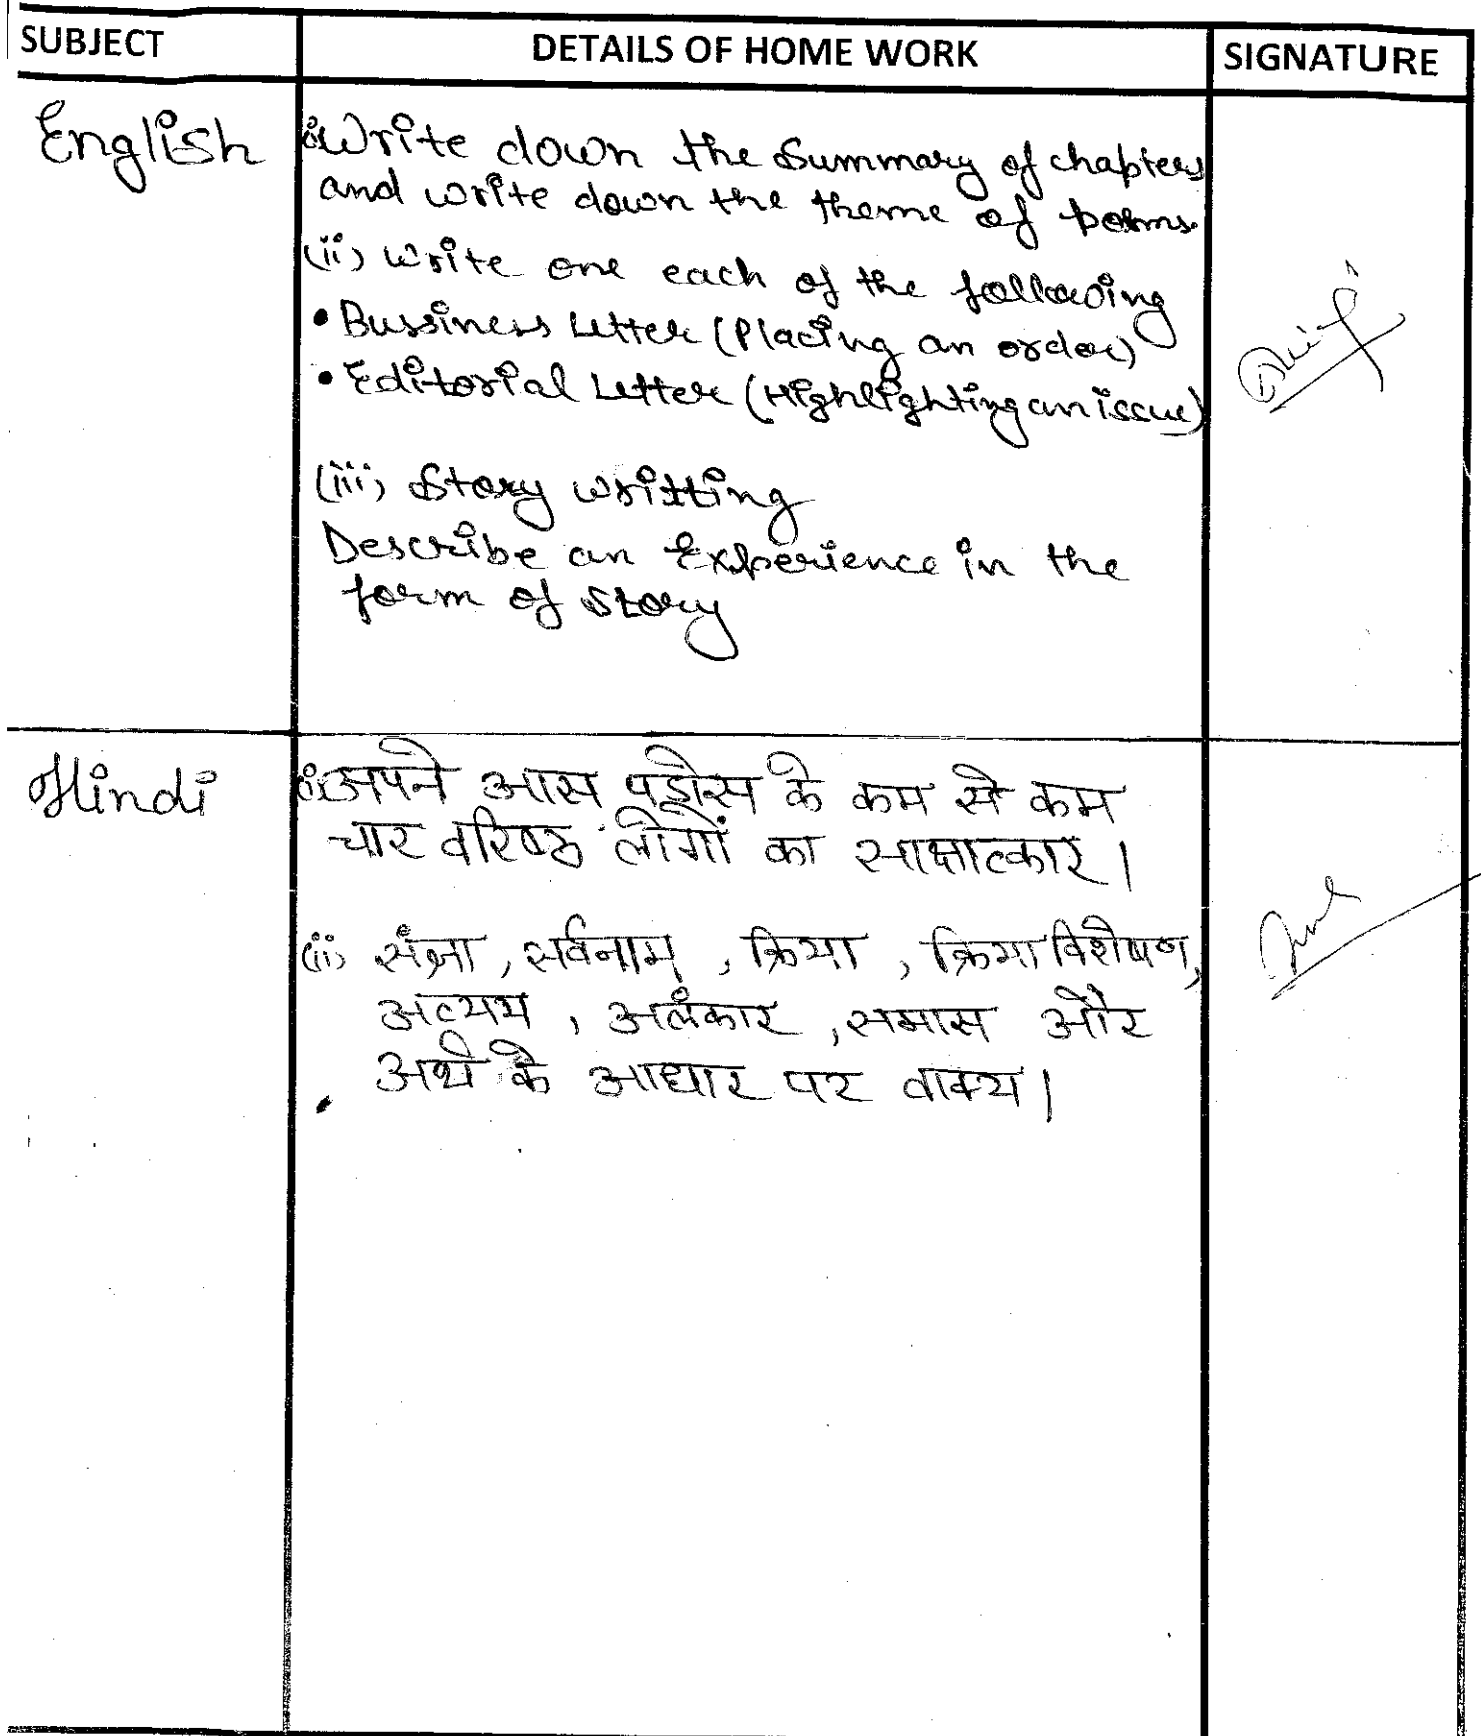 SUBJECT DETAILS OF HOME WORK SIGNATURE
English (i) Write down the Summary of chapters
and write down the theme of poems.
(ii) Write one each of the following
• Bussiness Letter (Placing an order)
• Editorial Letter (Highlighting an issue)
(iii) Story writting
Describe an Experience in the
form of story
Hindi (i) अपने आस पड़ोस के कम से कम
चार वरिष्ठ लोगों का साक्षात्कार।
(ii) संज्ञा, सर्वनाम, क्रिया, क्रिया विशेषण,
अव्यय, अलंकार, समास और
अर्थ के आधार पर वाक्य।